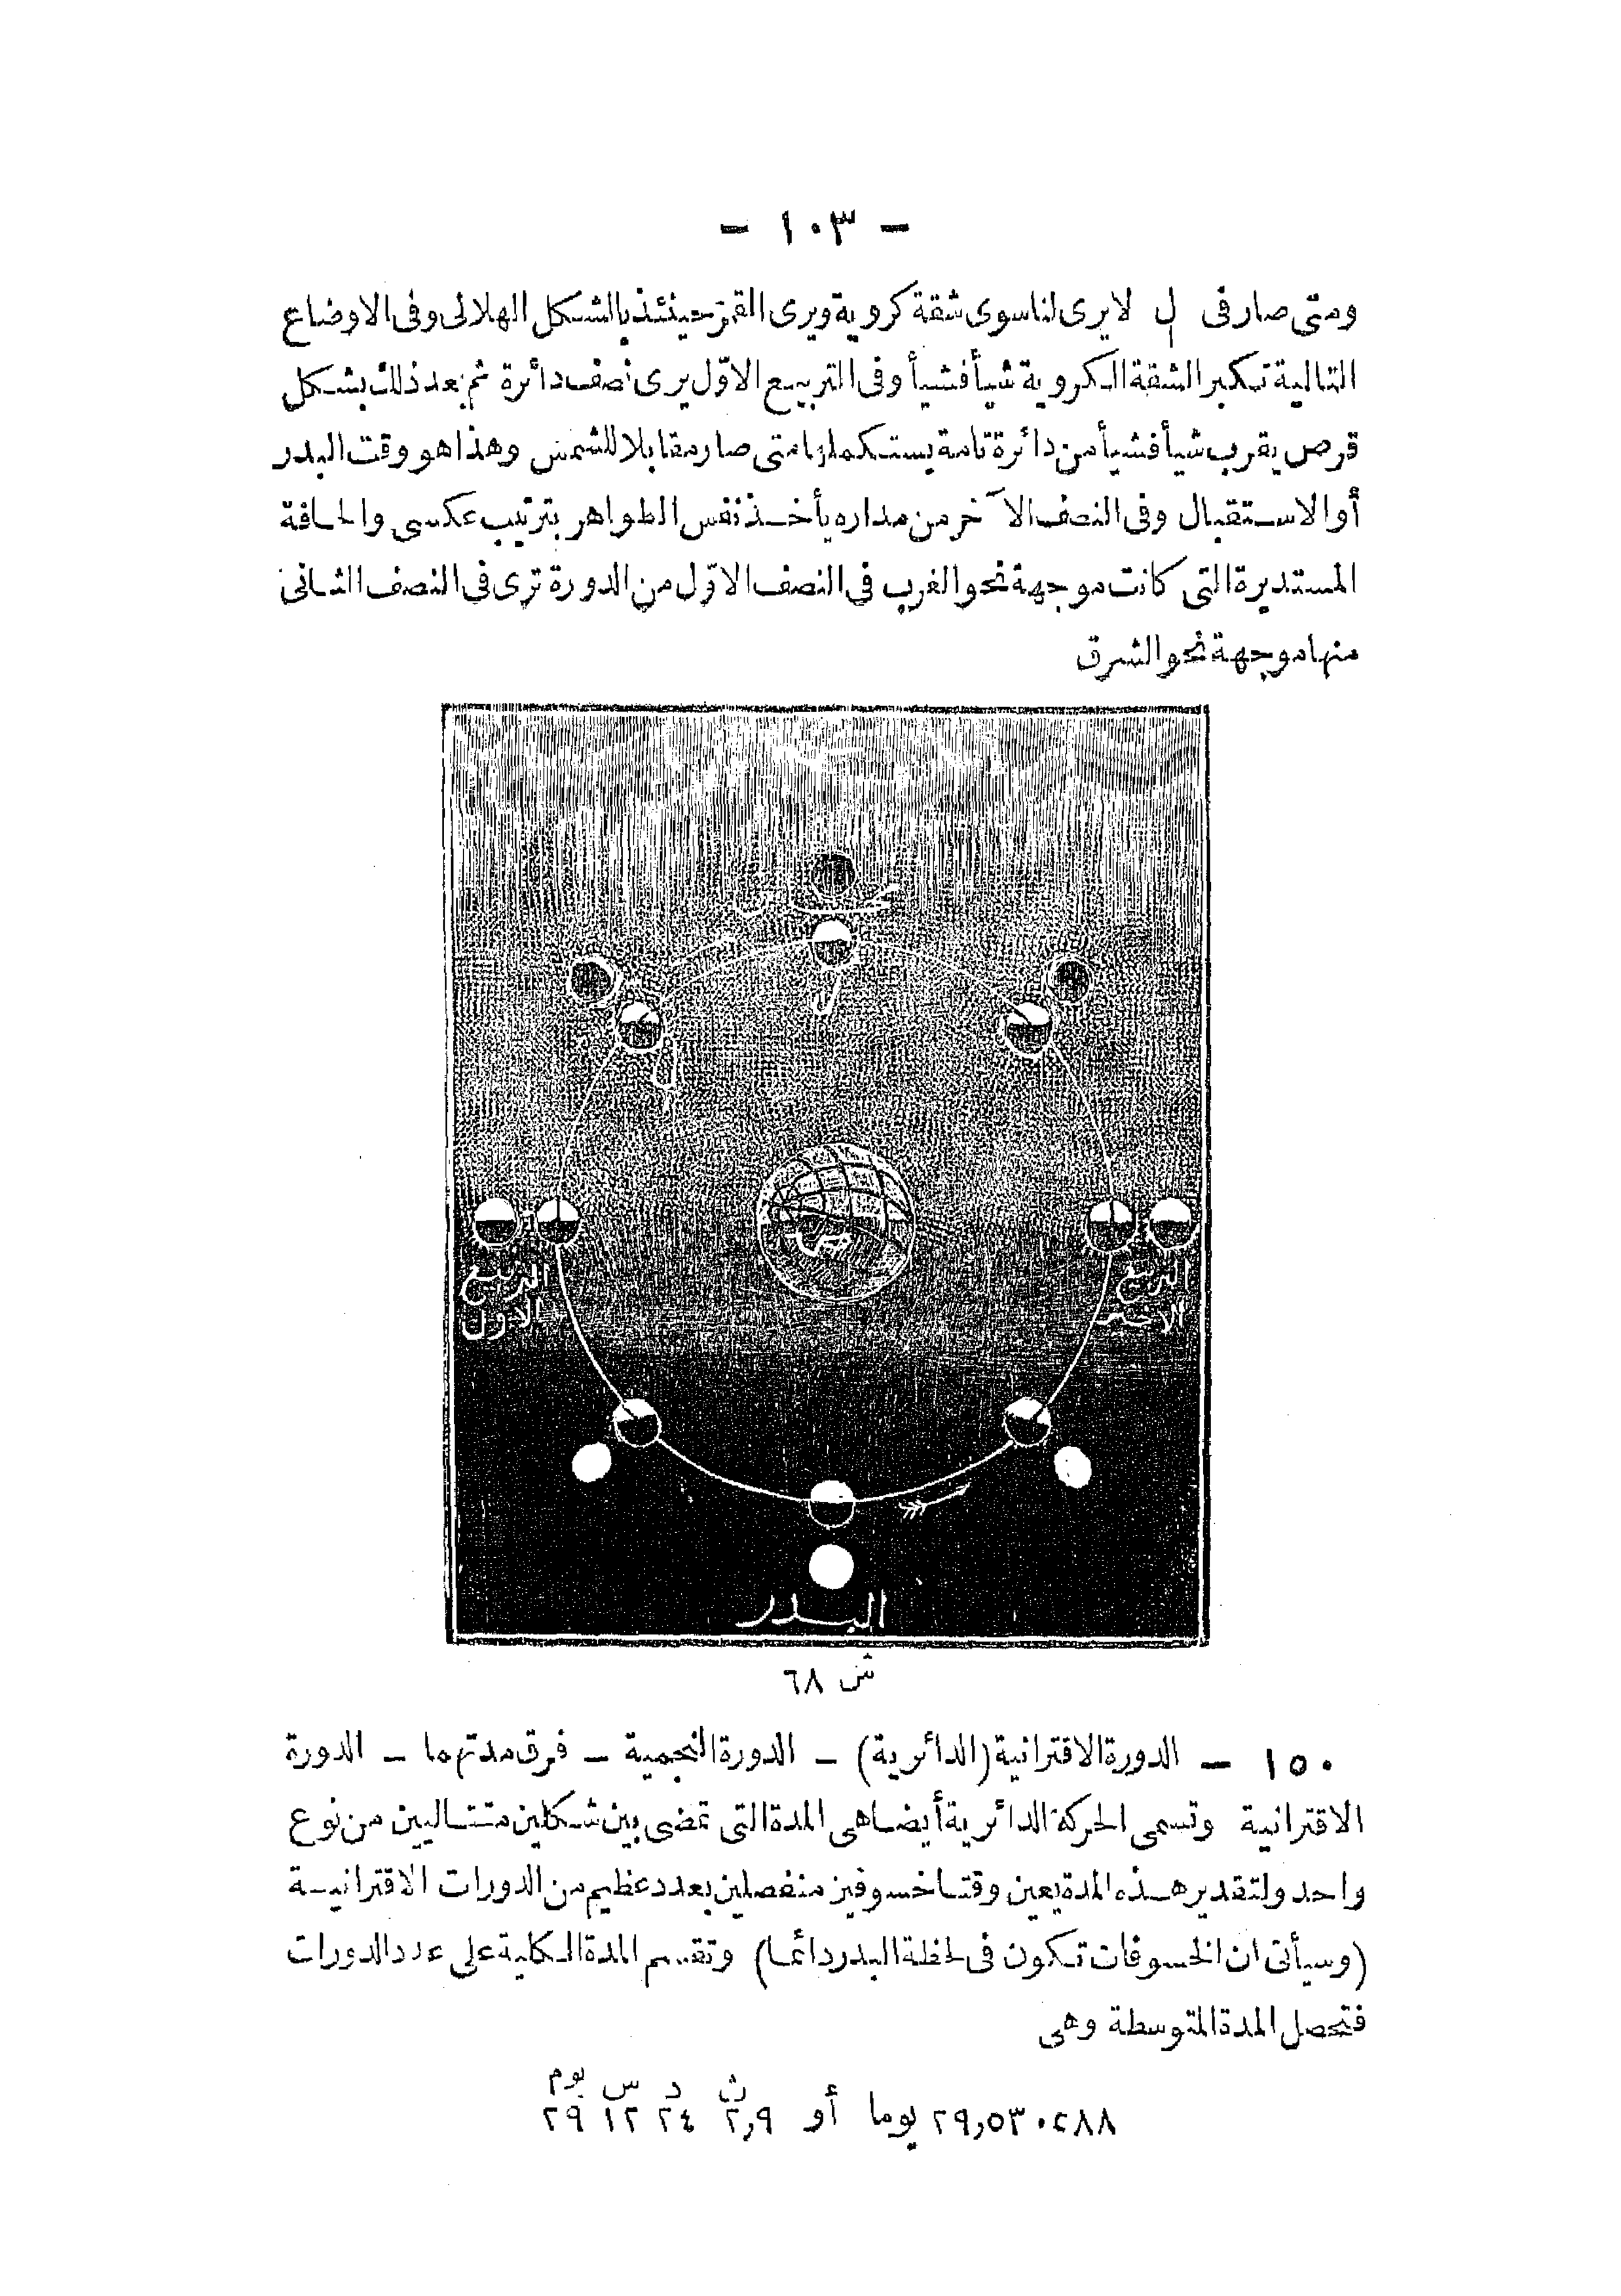 - ١٠٣ -
ومتى صار فى ل لا يرى لنا سوى شقة كروية ويرى القمر حينئذ بالشكل الهلالى وفى الاوضاع
التالية تكبر الشقة الكروية شيأ فشيأ وفى التربيع الاوّل يرى نصف دائرة ثم بعد ذلك بشكل
قرص يقرب شيأ فشيأ من دائرة تامة يستكملها متى صار مقابلا للشمس وهذا هو وقت البدر
أو الاستقبال وفى النصف الآخر من مداره يأخذ نفس الظواهر بترتيب عكسى والحافة
المستديرة التى كانت موجهة نحو الغرب فى النصف الاوّل من الدورة ترى فى النصف الثانى
منها موجهة نحو الشرق
ل
ل
التربيع
الاول
التربيع
الاخير
البدر
ش ٦٨
١٥٠ - الدورة الاقترانية (الدائرية) - الدورة النجمية - فرق مدتهما - الدورة
الاقترانية وتسمى الحركة الدائرية أيضا هى المدة التى تمضى بين شكلين متتاليين من نوع
واحد ولتقدير هذه المدة يعين وقتا خسوفين منفصلين بعدد عظيم من الدورات الاقترانية
(وسيأتى ان الخسوفات تكون فى لحظة البدر دائما) وتقسم المدة الكلية على عدد الدورات
فتحصل المدة المتوسطة وهى
يوم س د ث
٢٩,٥٣٠٢٨٨ يوما أو ٢,٩ ٢٤ ١٢ ٢٩